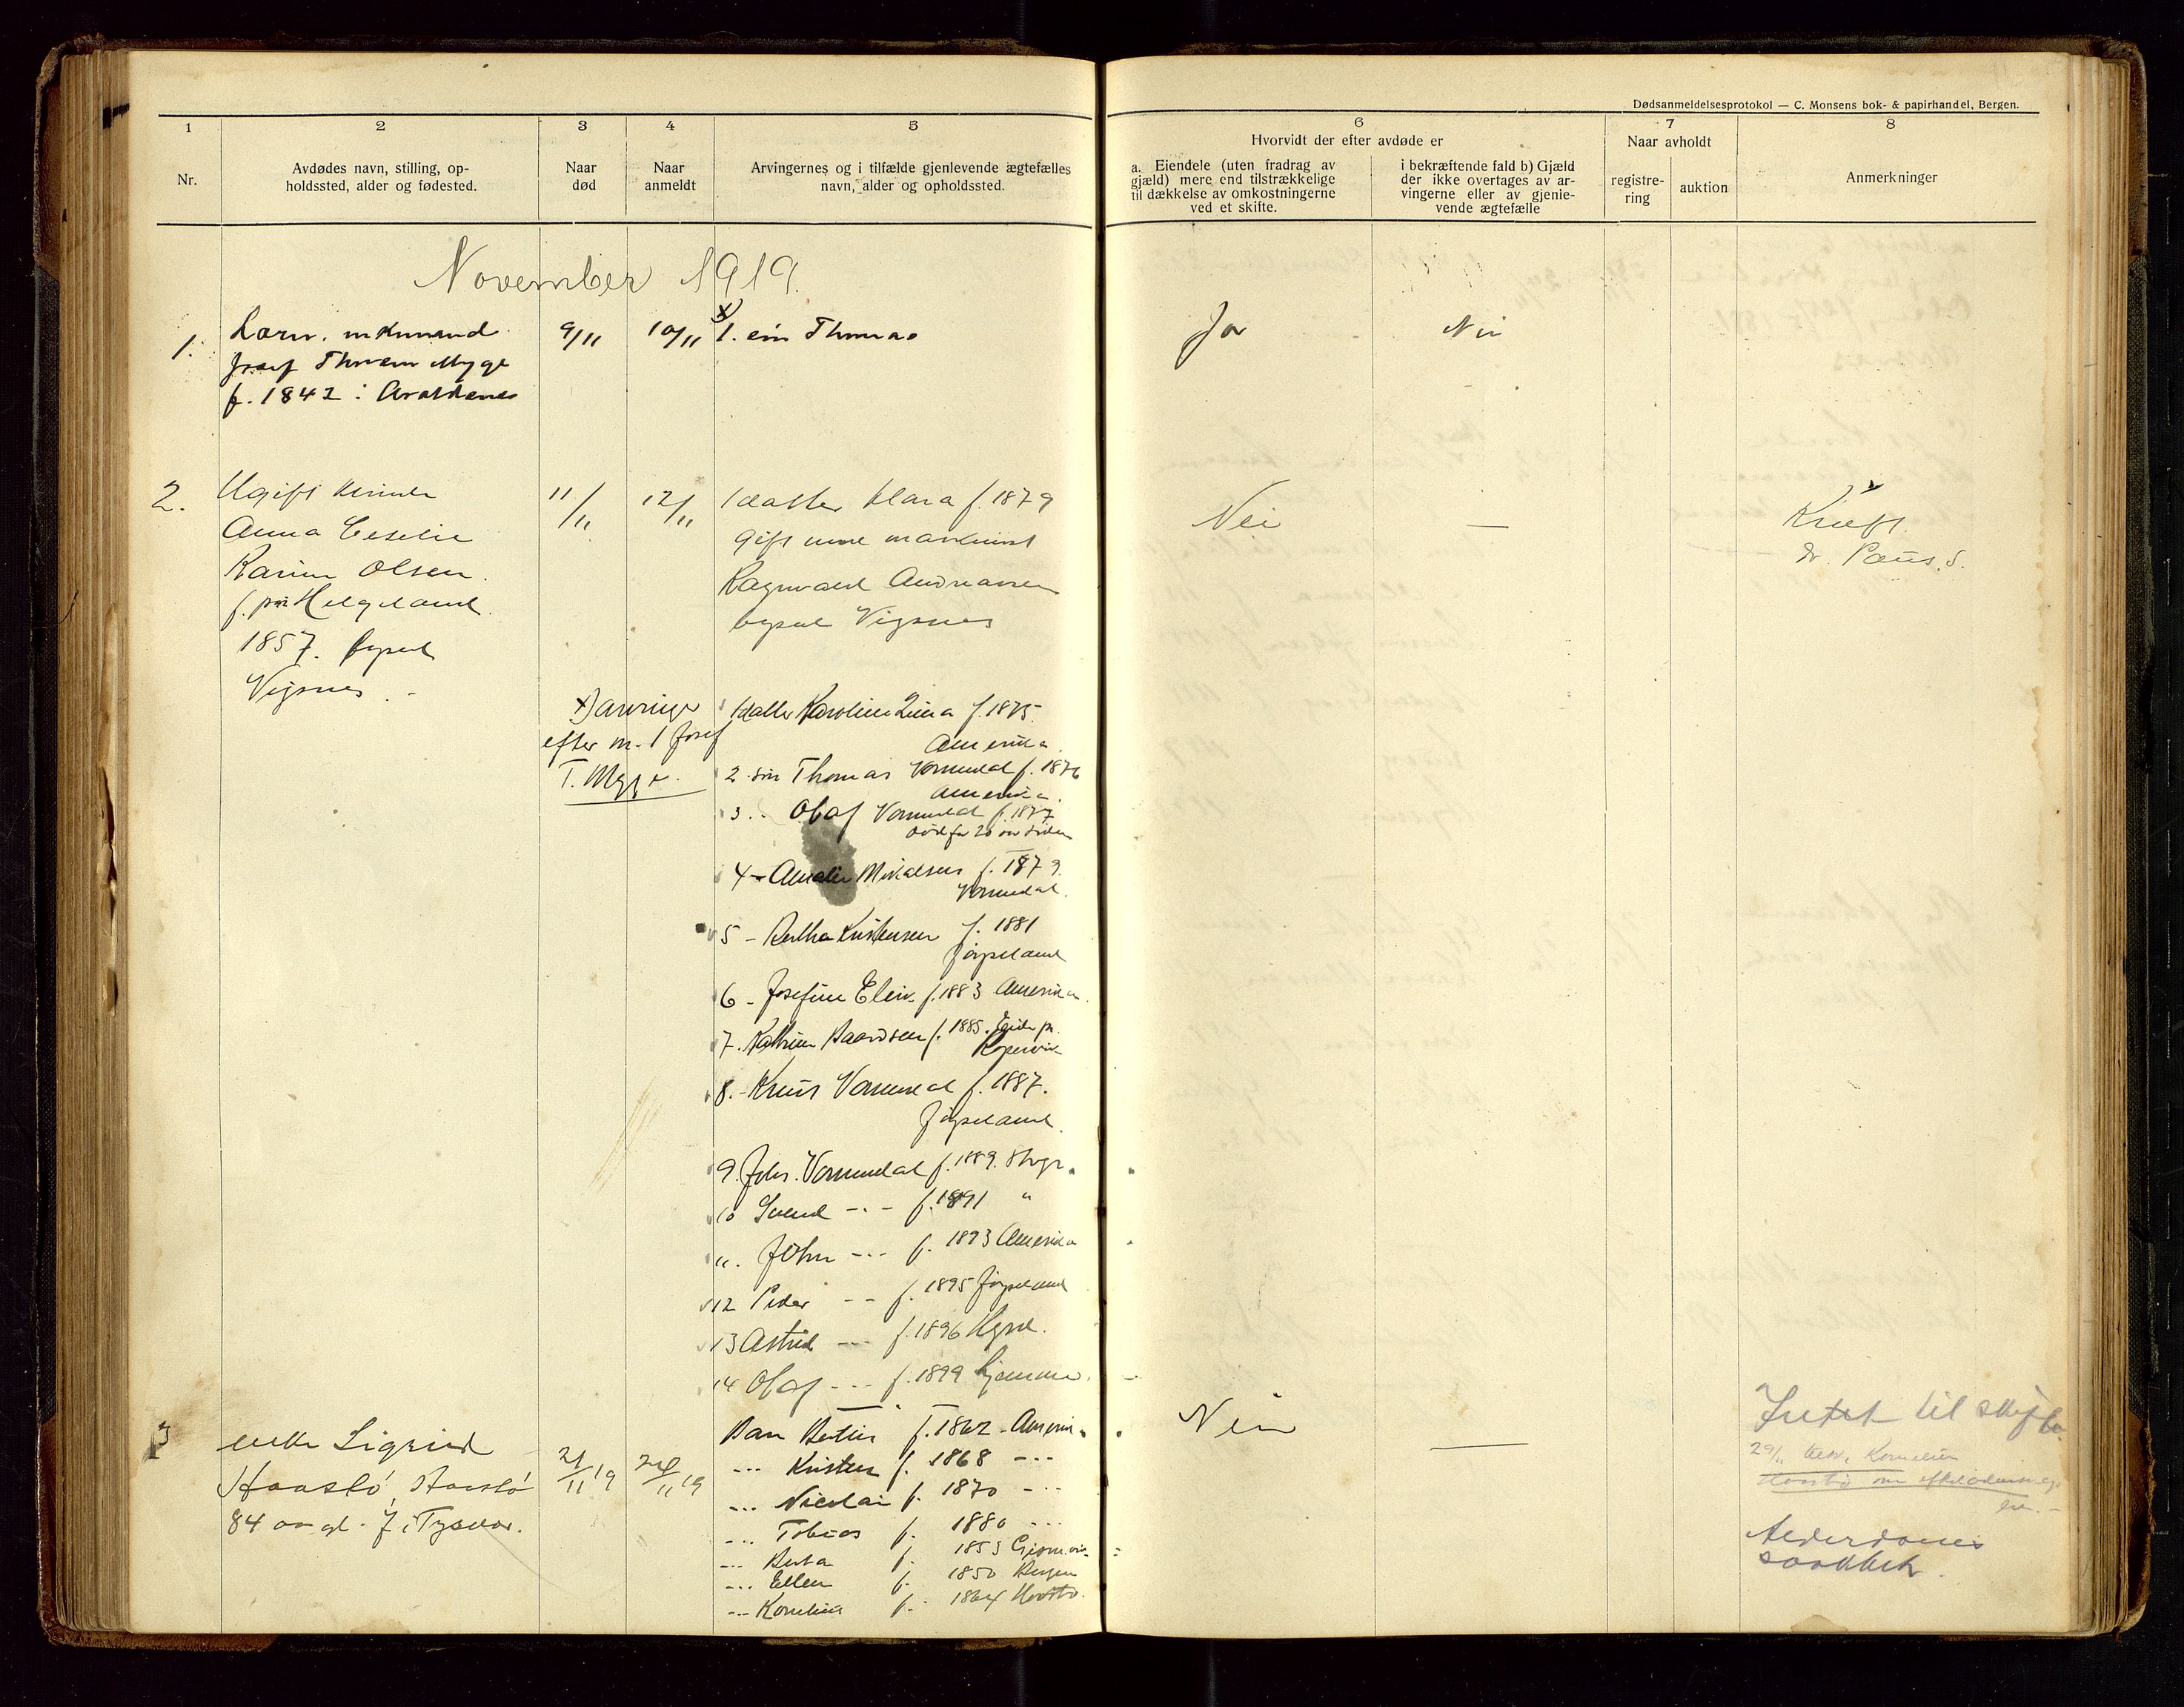 Dødsanmeldelsesprotokol — C. Monsens bok- & papirhandel, Bergen.
1 2 3 4 5 6 7 8
Nr.
Avdødes navn, stilling, op-
holdssted, alder og fødested.
Naar
død
Naar
anmeldt
Arvingernes og i tilfælde gjenlevende ægtefælles
navn, alder og opholdssted.
Hvorvidt der efter avdøde er
a. Eiendele (uten fradrag av
gjæld) mere end tilstrækkelige
til dækkelse av omkostningerne
ved et skifte.
i bekræftende fald b) Gjæld
der ikke overtages av ar-
vingerne eller av gjenle-
vende ægtefælle
Naar avholdt
registre-
ring
auktion
Anmerkninger
November 1919.
1.
Josef Mygge
f. 1842 i
9/11 10/11
x)
1. Thomas
Ja Nei
2.
Ugift kvinde
Anna
Karine Olsen.
f. på Helgeland.
1857. bopæl
Vigsnes.
11/11 12/11
1 datter Klara f. 1879
gift med maskinist
Ragnvald Andreassen
bopæl Vigsnes
Nei —
Kræft.
dr. Paus.
x) arvinge
efter nr. 1 Josef
T. Mygge.
1 datter Karoline f. 1875.
Amerika.
2. søn Thomas Vormedal f. 1876
Amerika.
3. - Olaf Vormedal f. 1877
død for 20 aar siden
4 - Amalie Mikalsen f. 1879.
Vormedal.
5 - Bertha Kristensen f. 1881
Jørpeland
6 - Josefine f. 1883 Amerika.
7. Kathrine Baardsen f. 1885. Eide pr.
Kopervik
8. - Knut Vormedal f. 1887.
Jørpeland.
9. Johs. Vormedal f. 1889. Stvgr.
10 Svend - . - f. 1891 "
11. John - . - f. 1893 Amerika
12 Peder - - f. 1895 Jørpeland
13 Astrid - . - f. 1896
14 Olaf - . - f. 1899 hjemme.
3
enke Sigrid
84 aar gl. f. i Tysvær.
21/11 19 24/11 19
Barn f. 1862 - Amerika
- . - Kristen f. 1868 - . -
- . - Nicolai f. 1870 - . -
- . - Tobias f. 1880 - . -
- . - Berta f. 1853
- . - Ellen f. 1850 Bergen
- . - Kornelius f. 1864
Nei —
Intet til skifte
29/11 Kornelius
Alderdoms
svakhet.